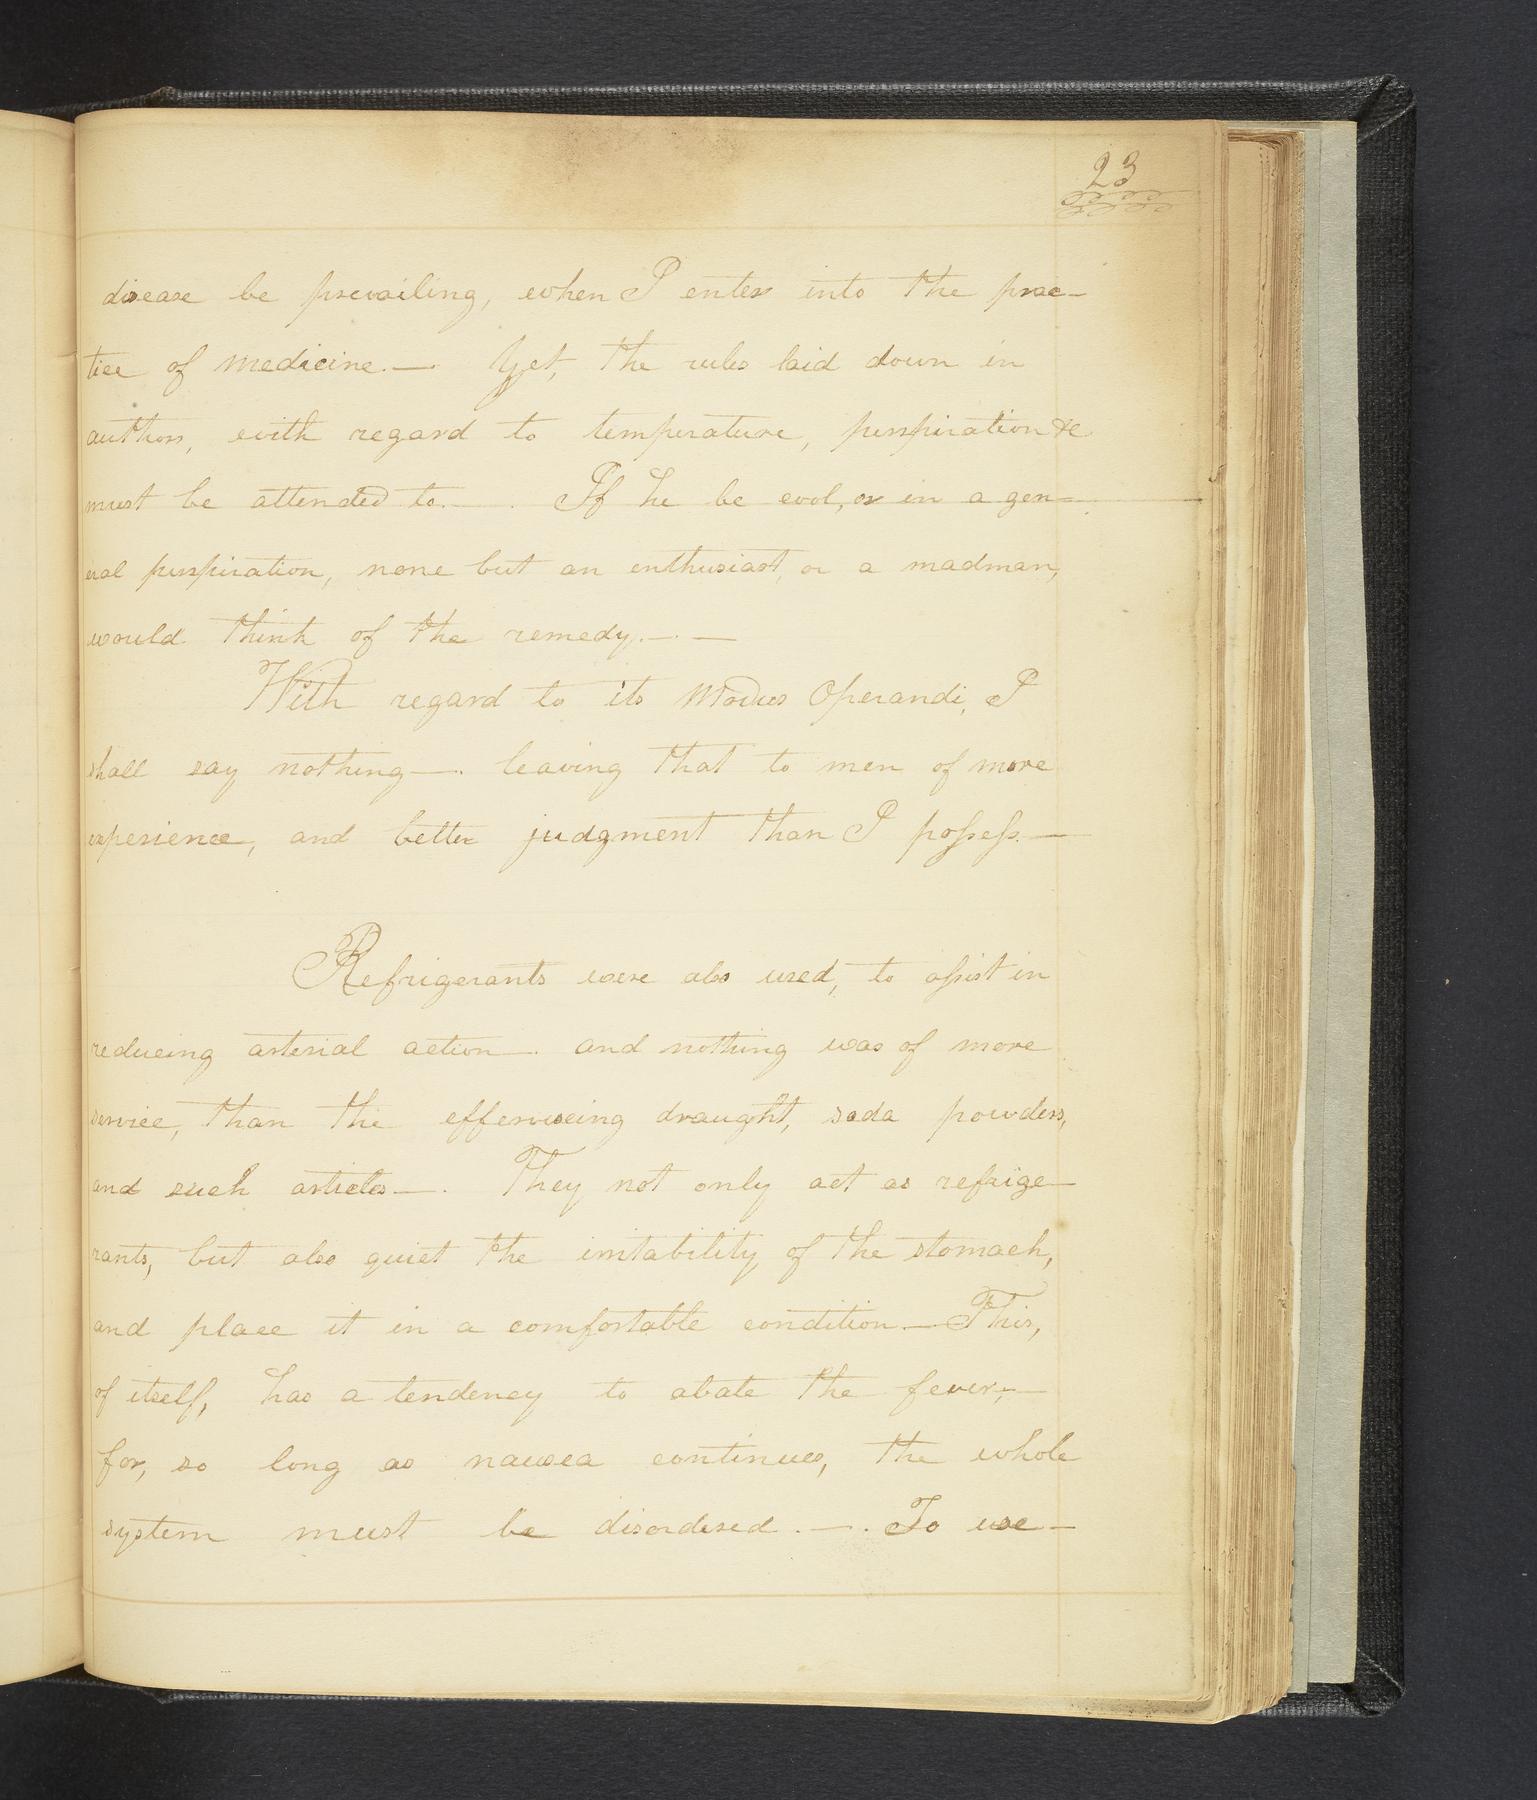 23
disease be prevailing, when I enter into the prac-
tice of medicine.—. Yet, the rules laid down in
authors, with regard to temperature, perspiration &c
must be attended to.—. If he be cool, or in a gen-
eral perspiration, none but an enthusiast, or a madman,
would think of the remedy.—.—
With regard to its Modus Operandi, I
shall say nothing—. leaving that to men of more
experience, and better judgment than I possess.—
Refrigerants were also used, to assist in
reducing arterial action—. and nothing was of more
service, than the effervescing draught, soda powders,
and such articles—. They not only act as refrige-
rants, but also quiet the irritability of the stomach,
and place it in a comfortable condition—This,
of itself, has a tendency to abate the fever;—
for, so long as nausea continues, the whole
system must be disordered.—. To use—